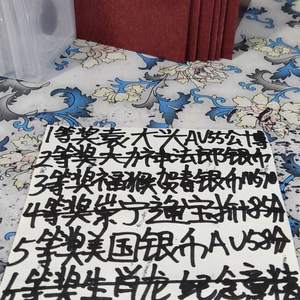 1等奖袁大头AU55公博
2等奖大
3等奖福猴贺春银币MS70
4等奖崇宁通宝折十85分
5等奖美国银币AU58分
6等奖生肖龙纪念章精